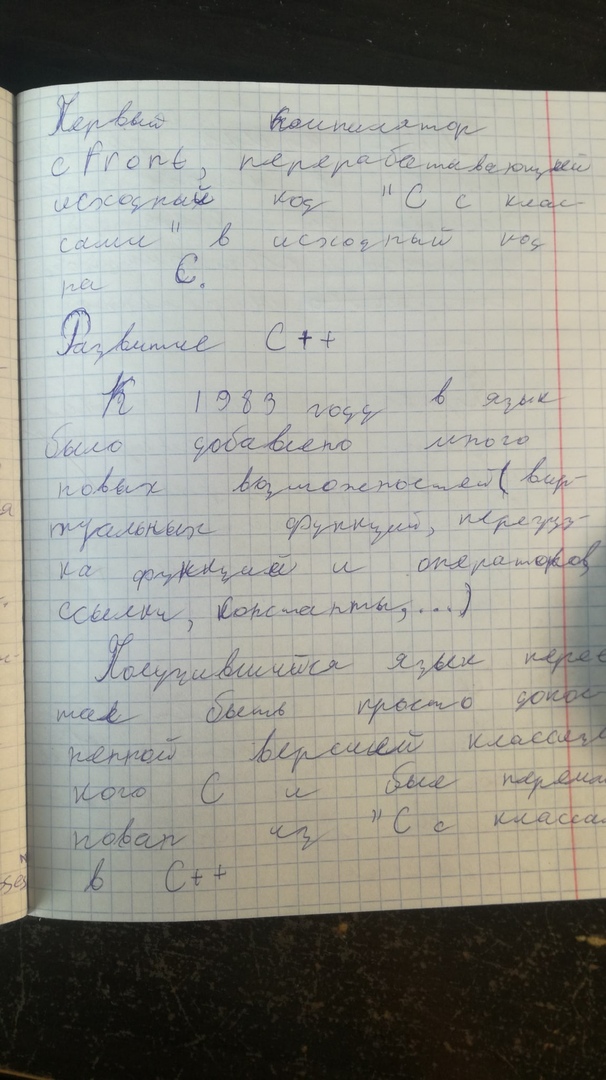 Первый компилятор
cfront, перерабатывающий
исходный код "С с клас-
сами" в исходный код
на С.
Развитие С++
К 1983 году в язык
было добавлено много
новых возможностей (вир-
туальных функций, перегруз-
ка функций и операторов
ссылки, константы, ...)
Получившийся язык перес
тал быть просто допол
ненной версией классичес
кого С и был переиме
нован из "С с классам
в С++